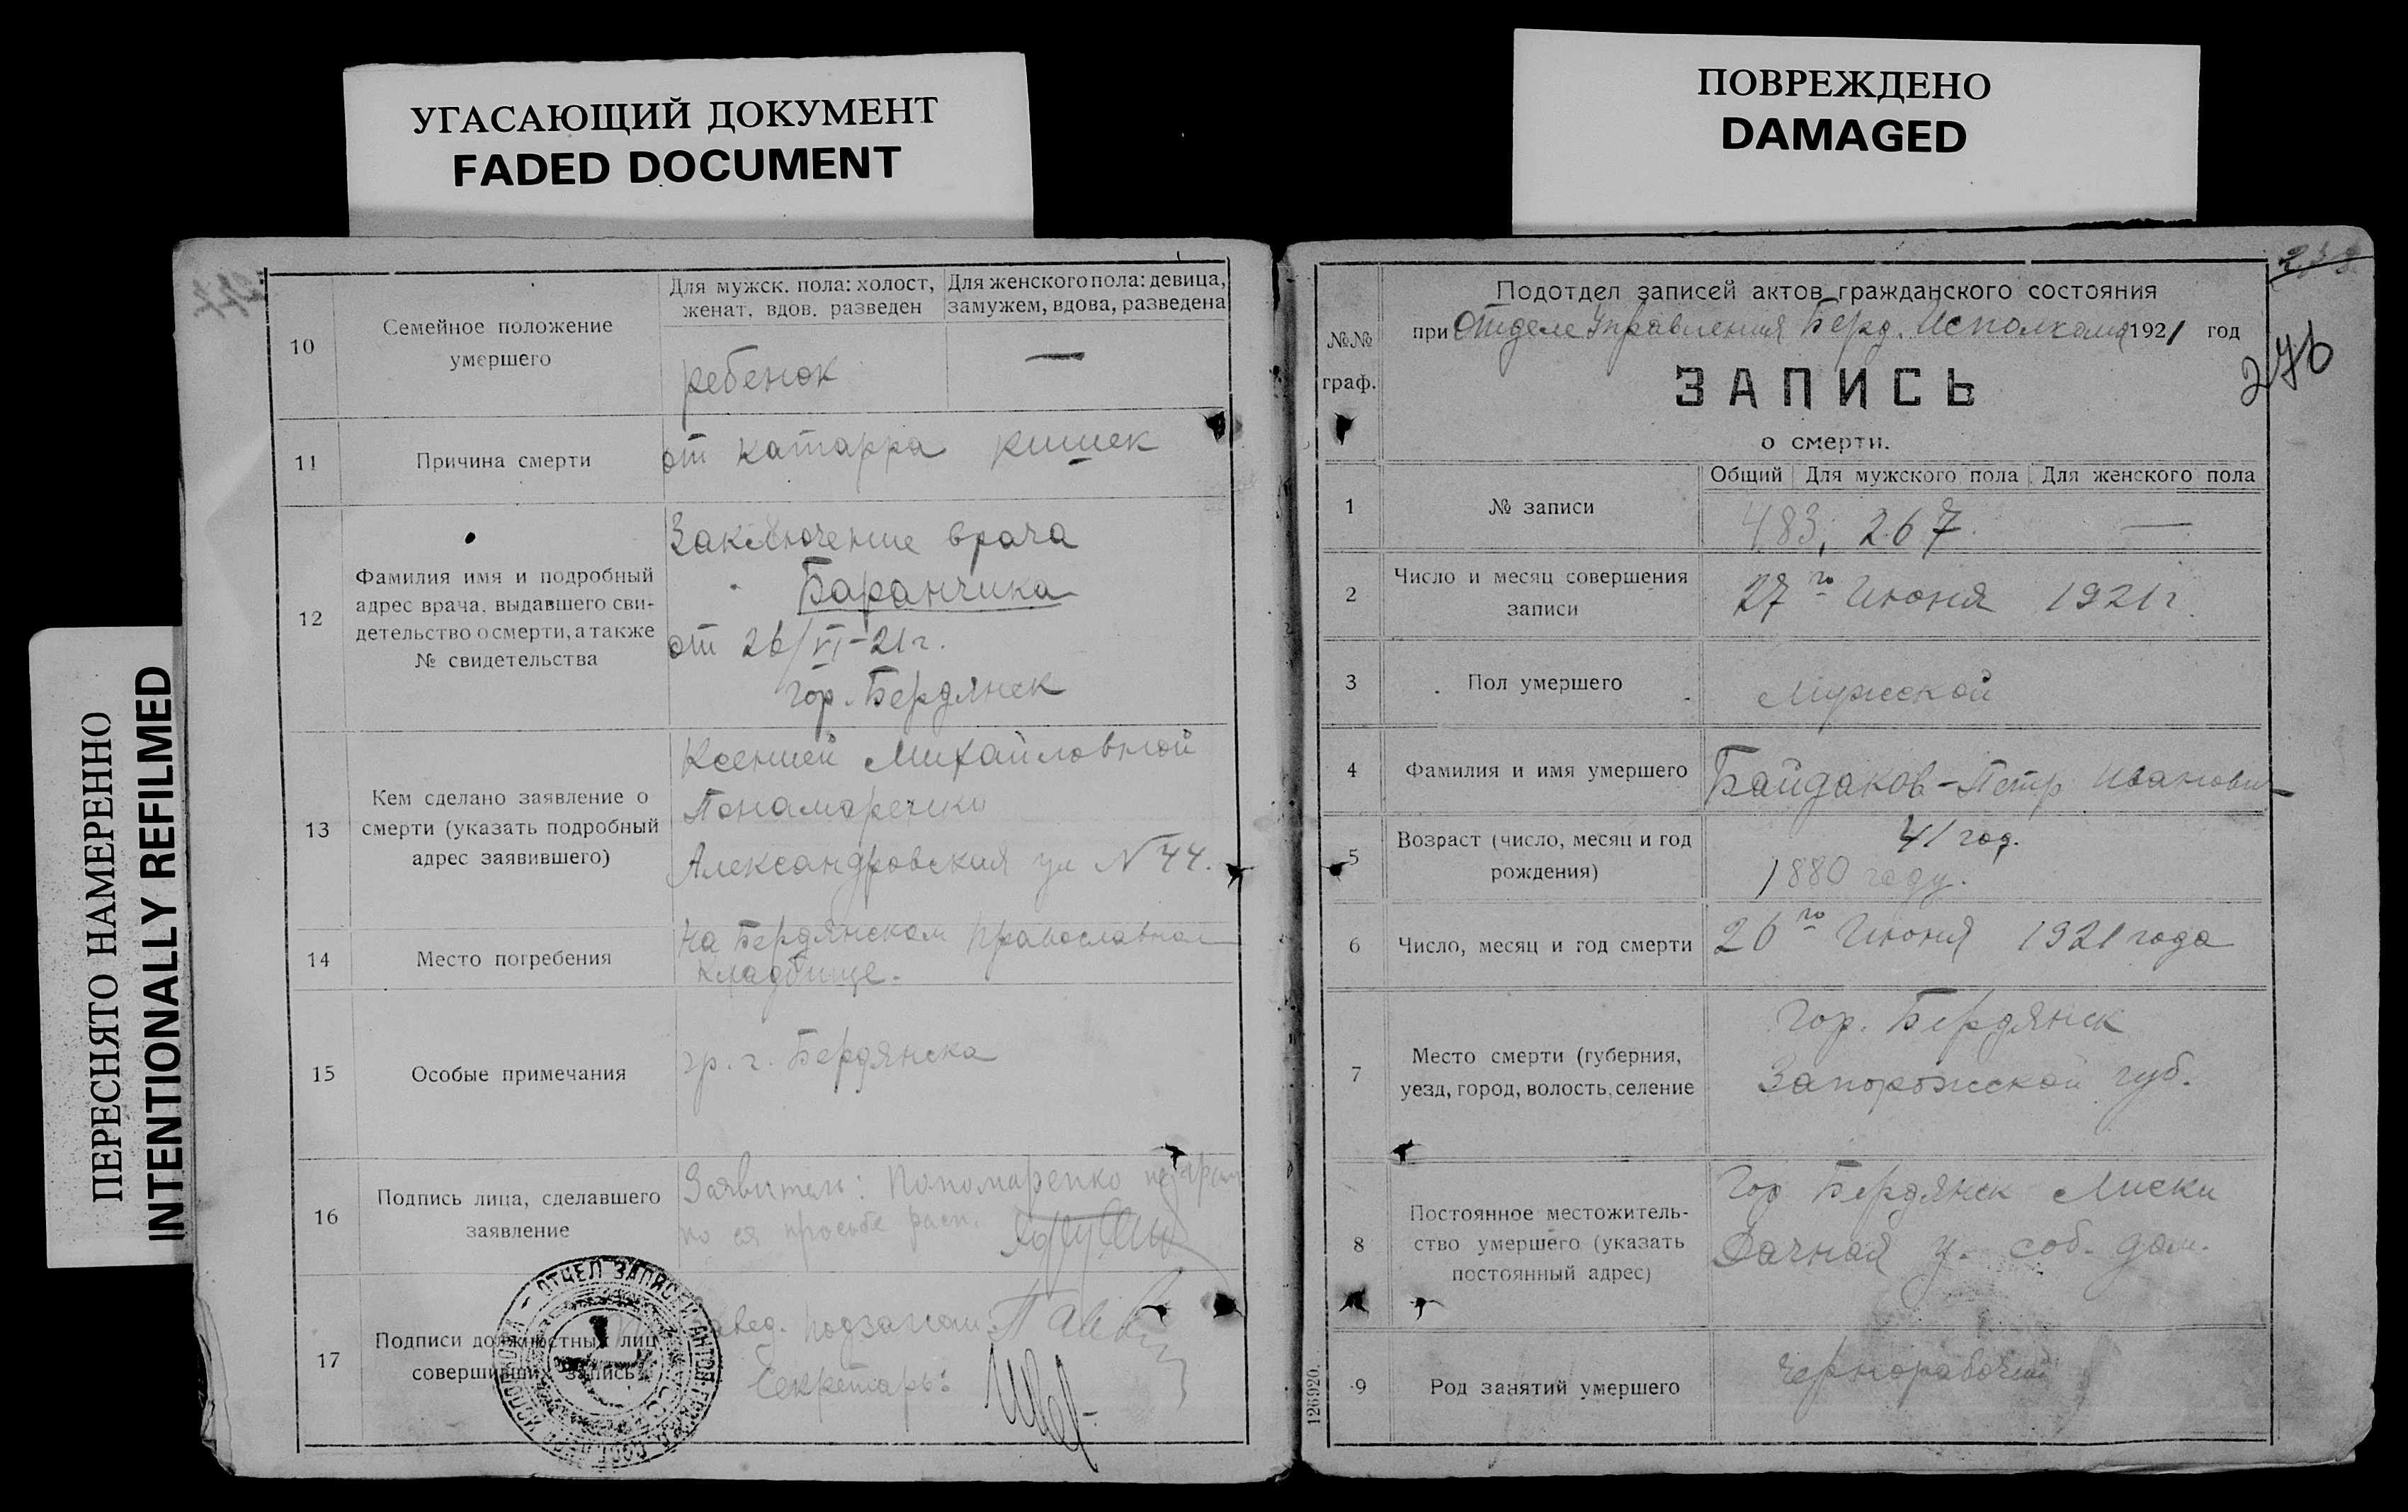 УГАСАЮЩИЙ ДОКУМЕНТ
FADED DOCUMENT
ПОВРЕЖДЕНО
DAMAGED
ПЕРЕСНЯТО НАМЕРЕННО
INTENTIONALLY REFILMED
10
Семейное положение
умершего
Для мужск. пола: холост,
женат, вдов. разведен
Для женского пола: девица,
замужем, вдова, разведена
ребенок
—
11
Причина смерти
от катарра кишек
12
Фамилия имя и подробный
адрес врача, выдавшего сви-
детельство о смерти, а также
№ свидетельства
Заключение врача
Баранчика
от 26/VI-21г.
гор. Бердянск
13
Кем сделано заявление о
смерти (указать подробный
адрес заявившего)
Ксенией Михайловной
Александровская ул N 44.
14
Место погребения
на Бердянском православном
кладбище.
15
Особые примечания
гр. г. Бердянска
16
Подпись лица, сделавшего
заявление
Заявитель: Пономаренко неграм
по ея просьбе расп.
17
Подписи должностных лиц
совершивших запись
Завед. подзагсом
Секретарь:
238
276
№№
граф.
Подотдел записей актов гражданского состояния
при Отделе Управления Берд. Исполкома 1921 год
ЗАПИСЬ
о смерти.
1
№ записи
Общий Для мужского пола Для женского пола
483; 267. —
2
Число и месяц совершения
записи
27го Июня 1921 г.
3
Пол умершего
Мужской
4
Фамилия и имя умершего
Байдаков - Петр Иванович
5
Возраст (число, месяц и год
рождения)
41 год.
1880 году.
6
Число, месяц и год смерти
26го Июня 1921 года
7
Место смерти (губерния,
уезд, город, волость, селение
гор. Бердянск
Запорожской губ.
8
Постоянное местожитель-
ство умершего (указать
постоянный адрес)
Гор Бердянск Лиски
Дачная у. соб. дом.
9
Род занятий умершего
чернорабочий
126920.